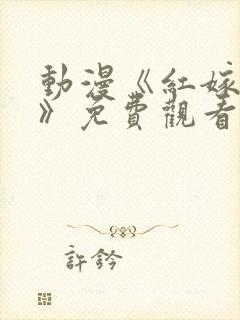 動漫《紅嫁
》免費觀看
許鈐